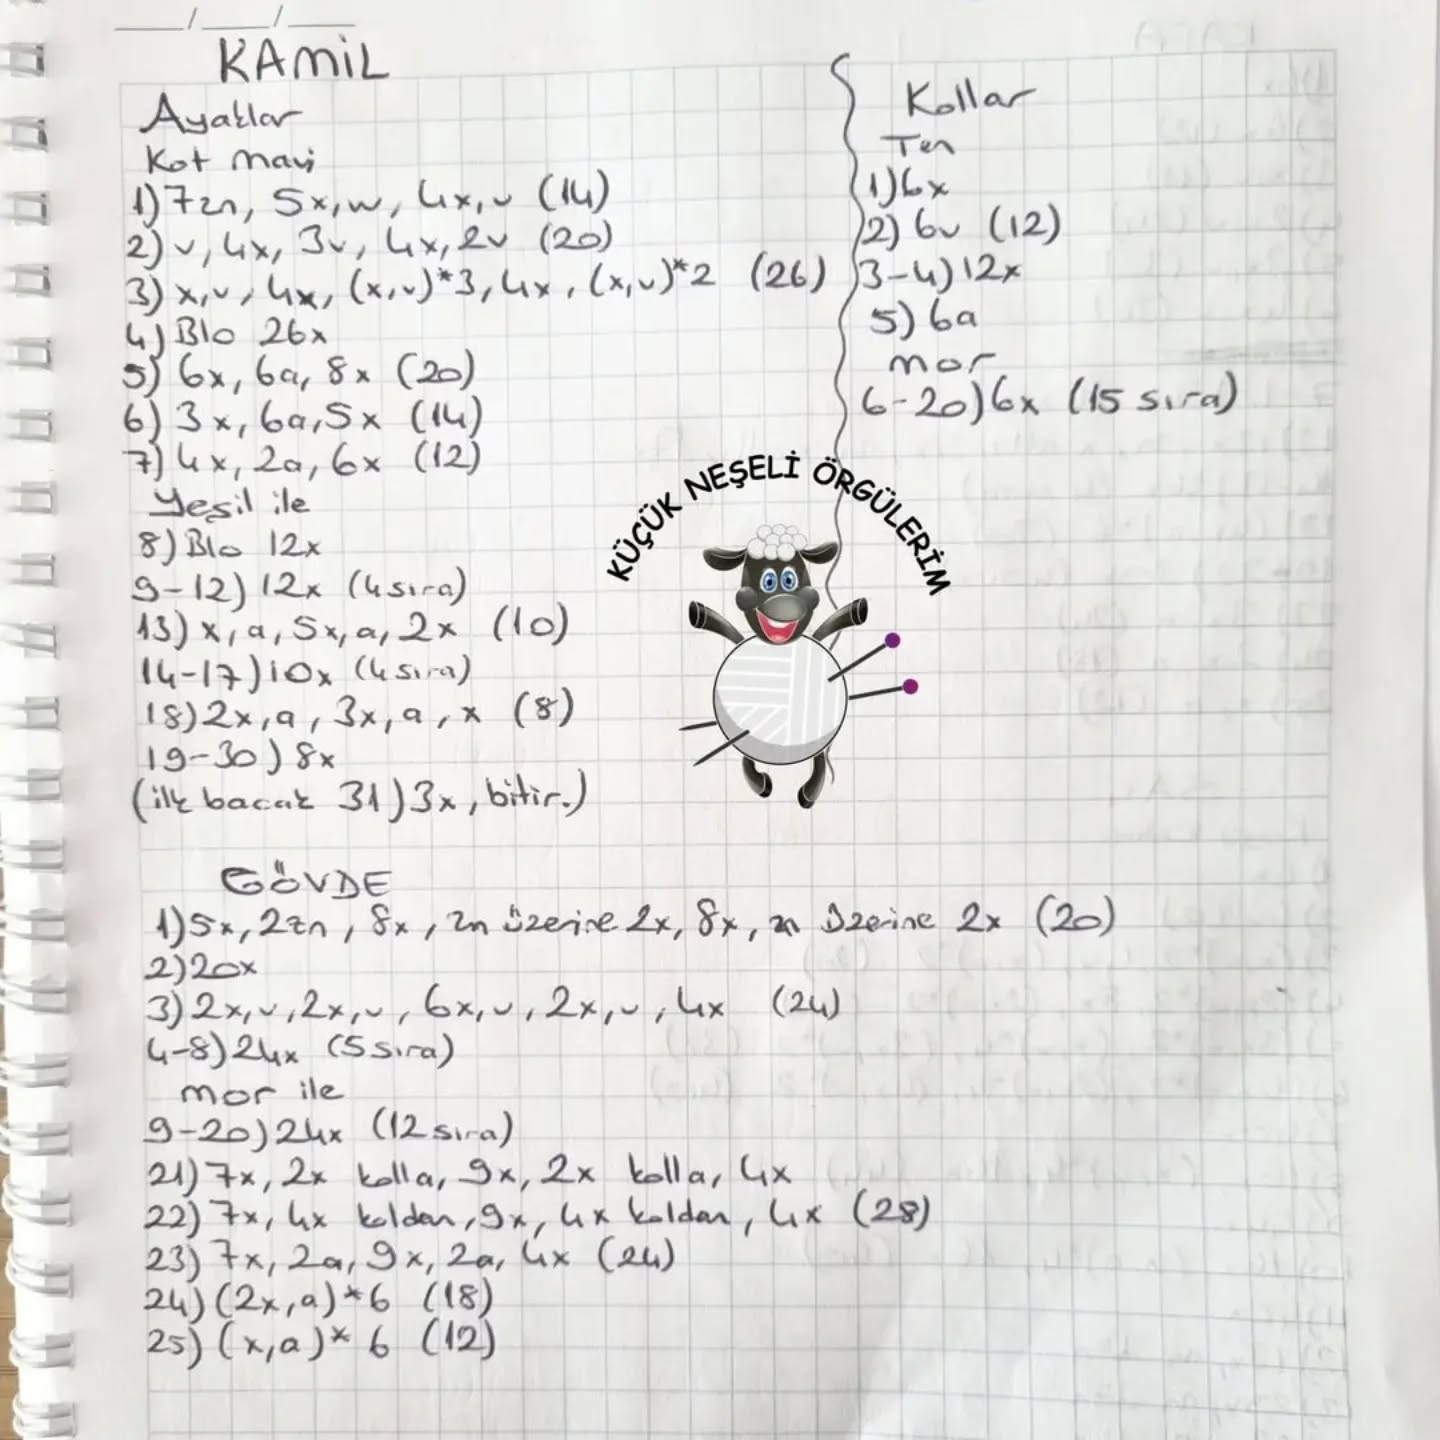 KAMİL
Ayaklar
Kot mavi
1) 7zn, 5x, w, 4x, v (14)
2) v, 4x, 3v, 4x, 2v (20)
3) x, v, 4x, (x,v)*3, 4x, (x,v)*2 (26)
4) Blo 26x
5) 6x, 6a, 8x (20)
6) 3x, 6a, 5x (14)
7) 4x, 2a, 6x (12)
Yeşil ile
8) Blo 12x
9-12) 12x (4 sıra)
13) x, a, 5x, a, 2x (10)
14-17) 10x (4 sıra)
18) 2x, a, 3x, a, x (8)
19-30) 8x
(ilk bacak 31) 3x, bitir.)
Kollar
Ten
1) 6x
2) 6v (12)
3-4) 12x
5) 6a
mor
6-20) 6x (15 sıra)
KÜÇÜK NEŞELİ ÖRGÜLERİM
GÖVDE
1) 5x, 2zn, 8x, zn üzerine 2x, 8x, zn üzerine 2x (20)
2) 20x
3) 2x, v, 2x, v, 6x, v, 2x, v, 4x (24)
4-8) 24x (5 sıra)
mor ile
9-20) 24x (12 sıra)
21) 7x, 2x kolla, 9x, 2x kolla, 4x
22) 7x, 4x koldan, 9x, 4x koldan, 4x (28)
23) 7x, 2a, 9x, 2a, 4x (24)
24) (2x, a)*6 (18)
25) (x,a)* 6 (12)